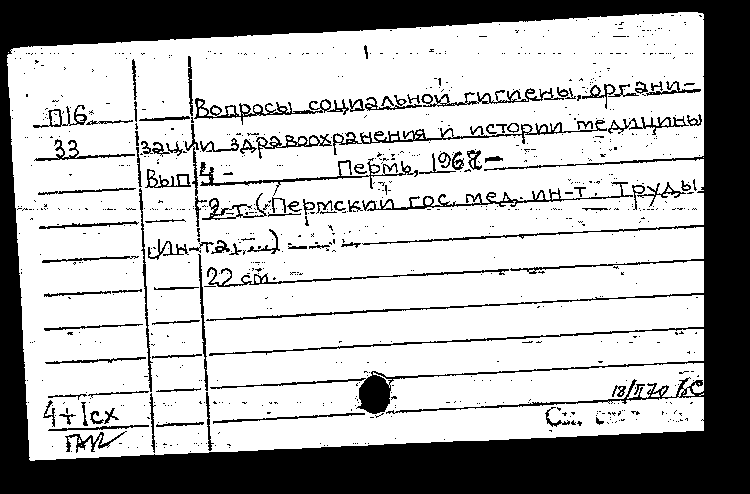 П16 Вопросы социальной гигиены, органи-
33 зации здравоохранения и истории медицины
Вып. 4- Пермь, 1968-
2-т. (Пермский гос. мед. ин-т. Труды
ин-та, ...)
22 см.
18/II 70 ВС
4+1сх
См.